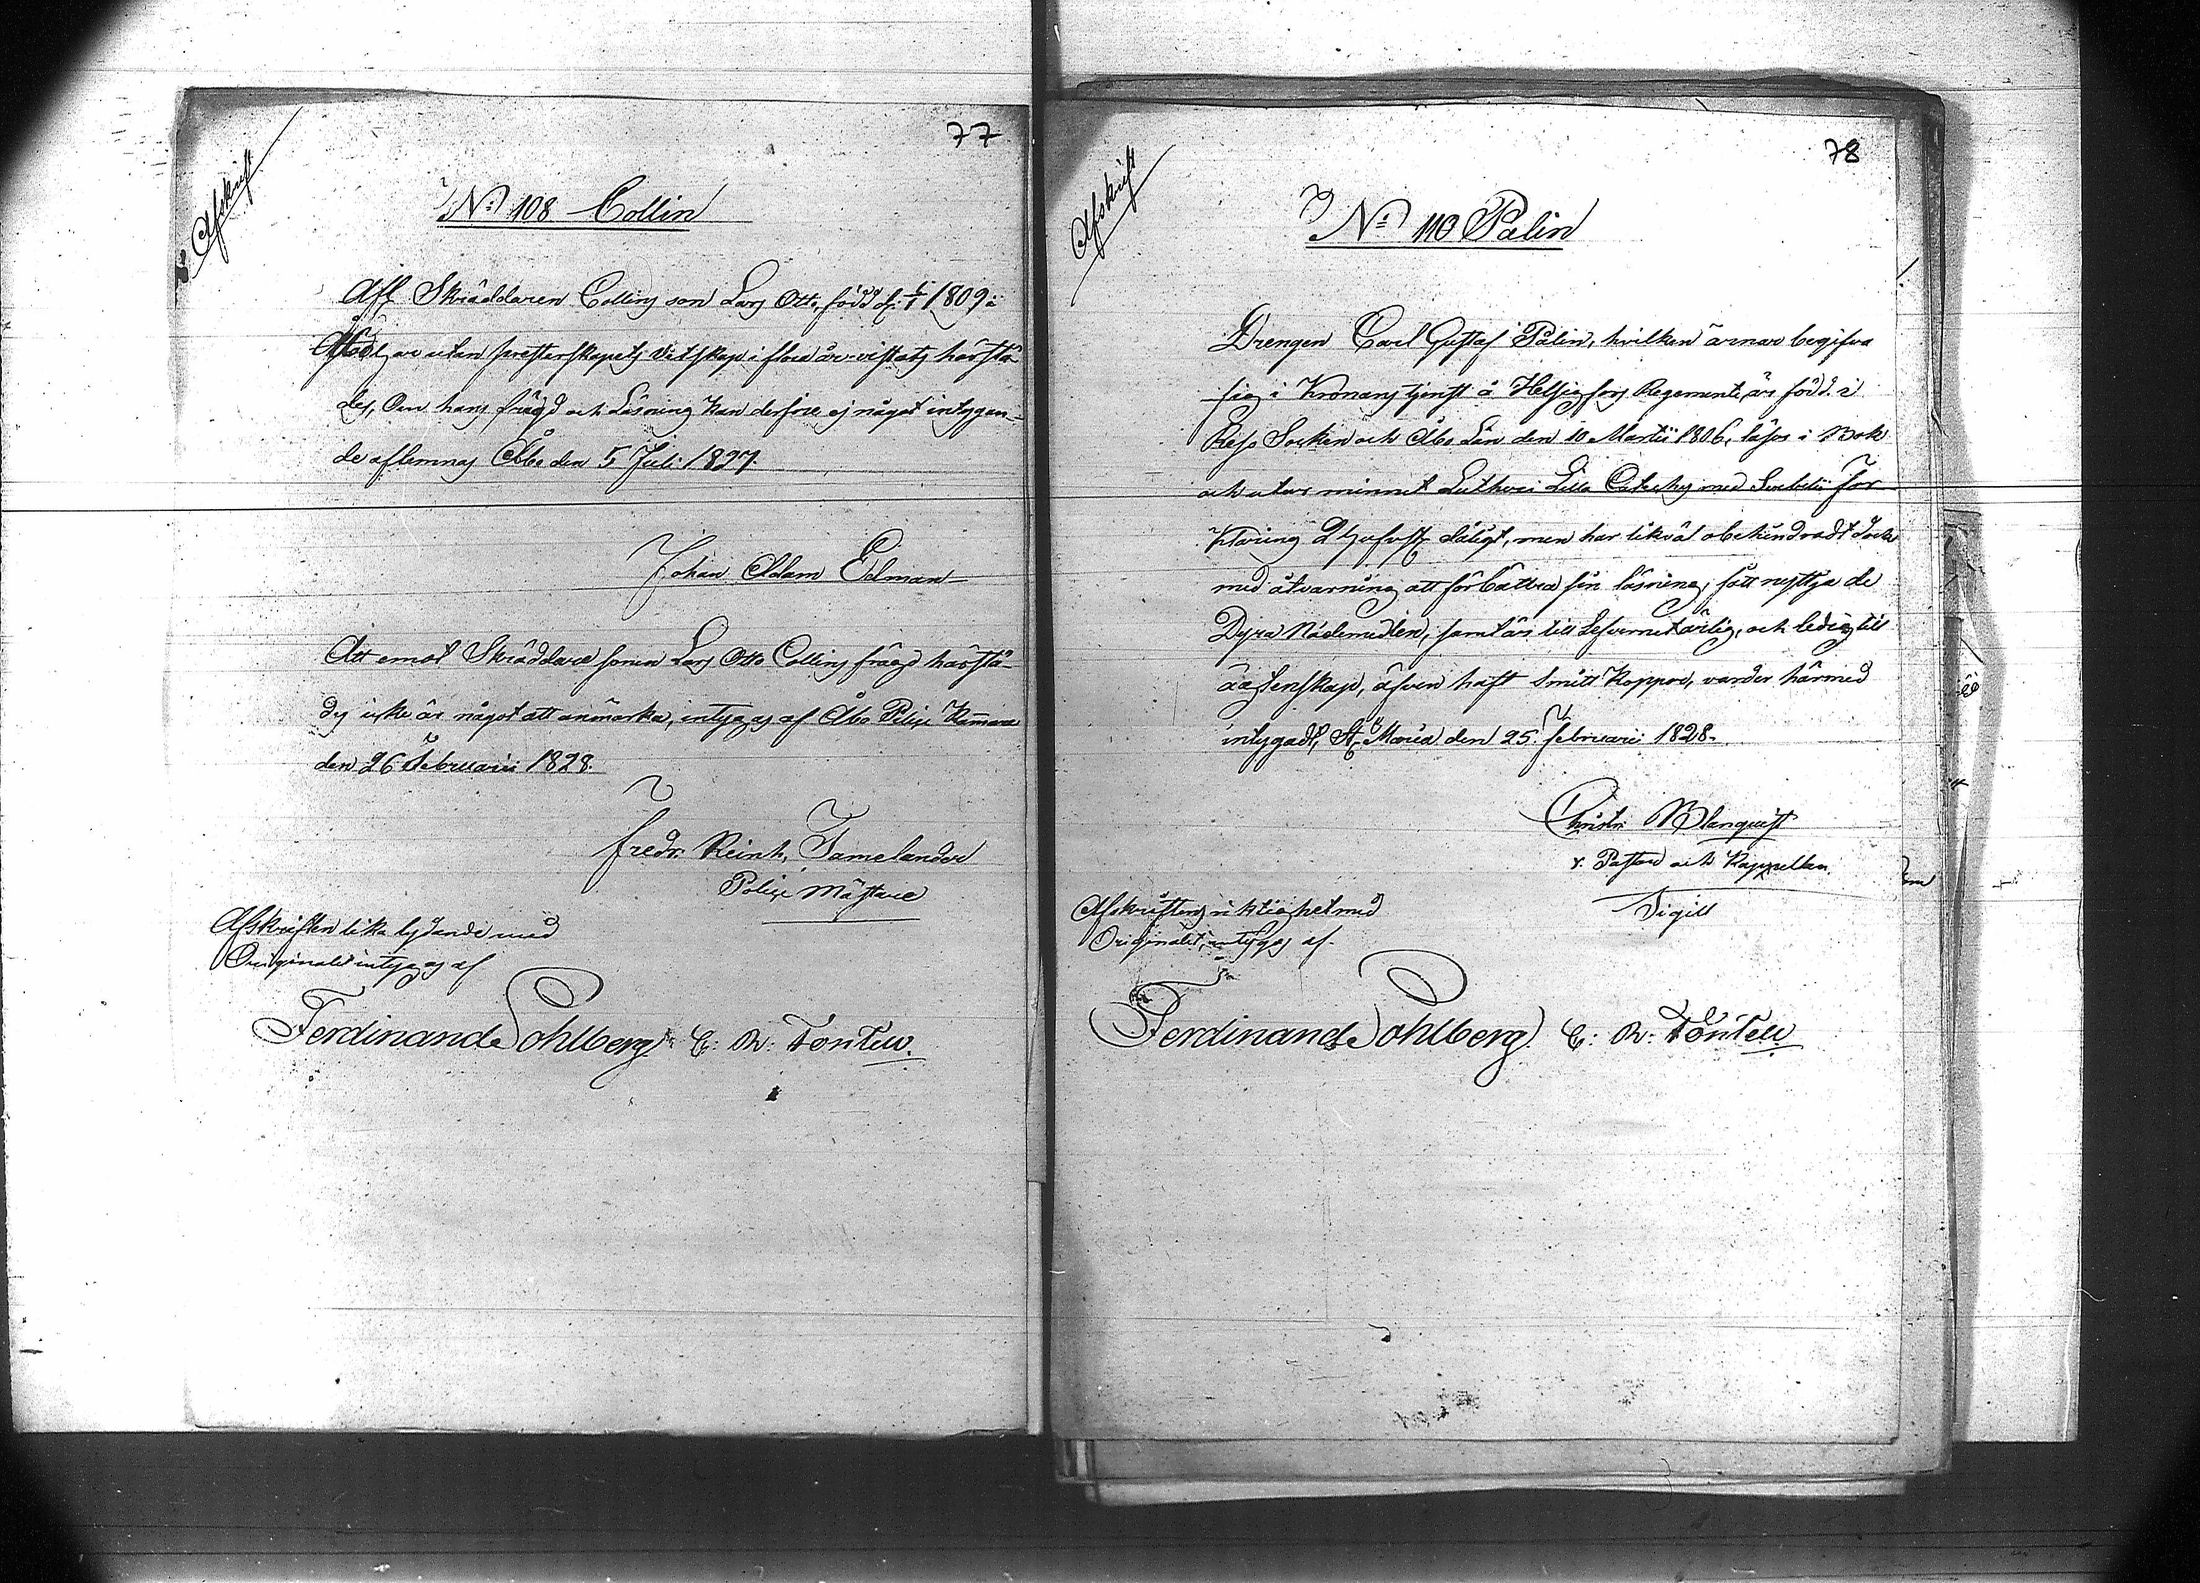 77
Afskrift
No 108 Collin
Afl Skräddaren Collins son Lars Otto, född d: 1/1 1809 i
Åbo har utan presterskapets vetskap i flera år vistats härstä-
des, Om hans frägd och Läsning kan derföre ej något intygan-
de aflemnas Åbo den 5 Juli 1827.
Johan Adam Edman
Att emot Skräddare sonen Lars Otto Collins frägd härstä-
des icke är något att anmärka, intygas af Åbo Polise Kammare
den 26 Februarii 1828.
Fredr. Reinh. Tamelander
Polise Mästare
Afskriften lika lydande med
Originalet intygas af
Ferdinand Sohlberg C: R: Tontell.
78
Afskrift
No 110 Palin
Drengen Carl Gustaf Palin, hvilken ärnar begifva
sig i Kronans tjenst å Helsingfors Regemente är född i
Reso Socken och Åbo Län den 10 Martii 1806, läser i Bok
och utur minnet Lutheri Lilla Cateches med Svebelii För
klaring dåligt, men har likväl obehindradt dock
med åtvarning att förbättra sin läsning, fått nyttja de
Dyra Nådemedlen, samt är till Lefvernet ärlig, och ledig till
ägtenskap, äfven haft Smitt Koppor, varder härmed
intygadt, St Maria den 25. Februarii 1828.
Christ: Blanquist
v. Pastor och Kappellan
Sigill
Afskriftens riktighet med
Originalet, intygas af
Ferdinand Sohlberg C: R: Tontell.